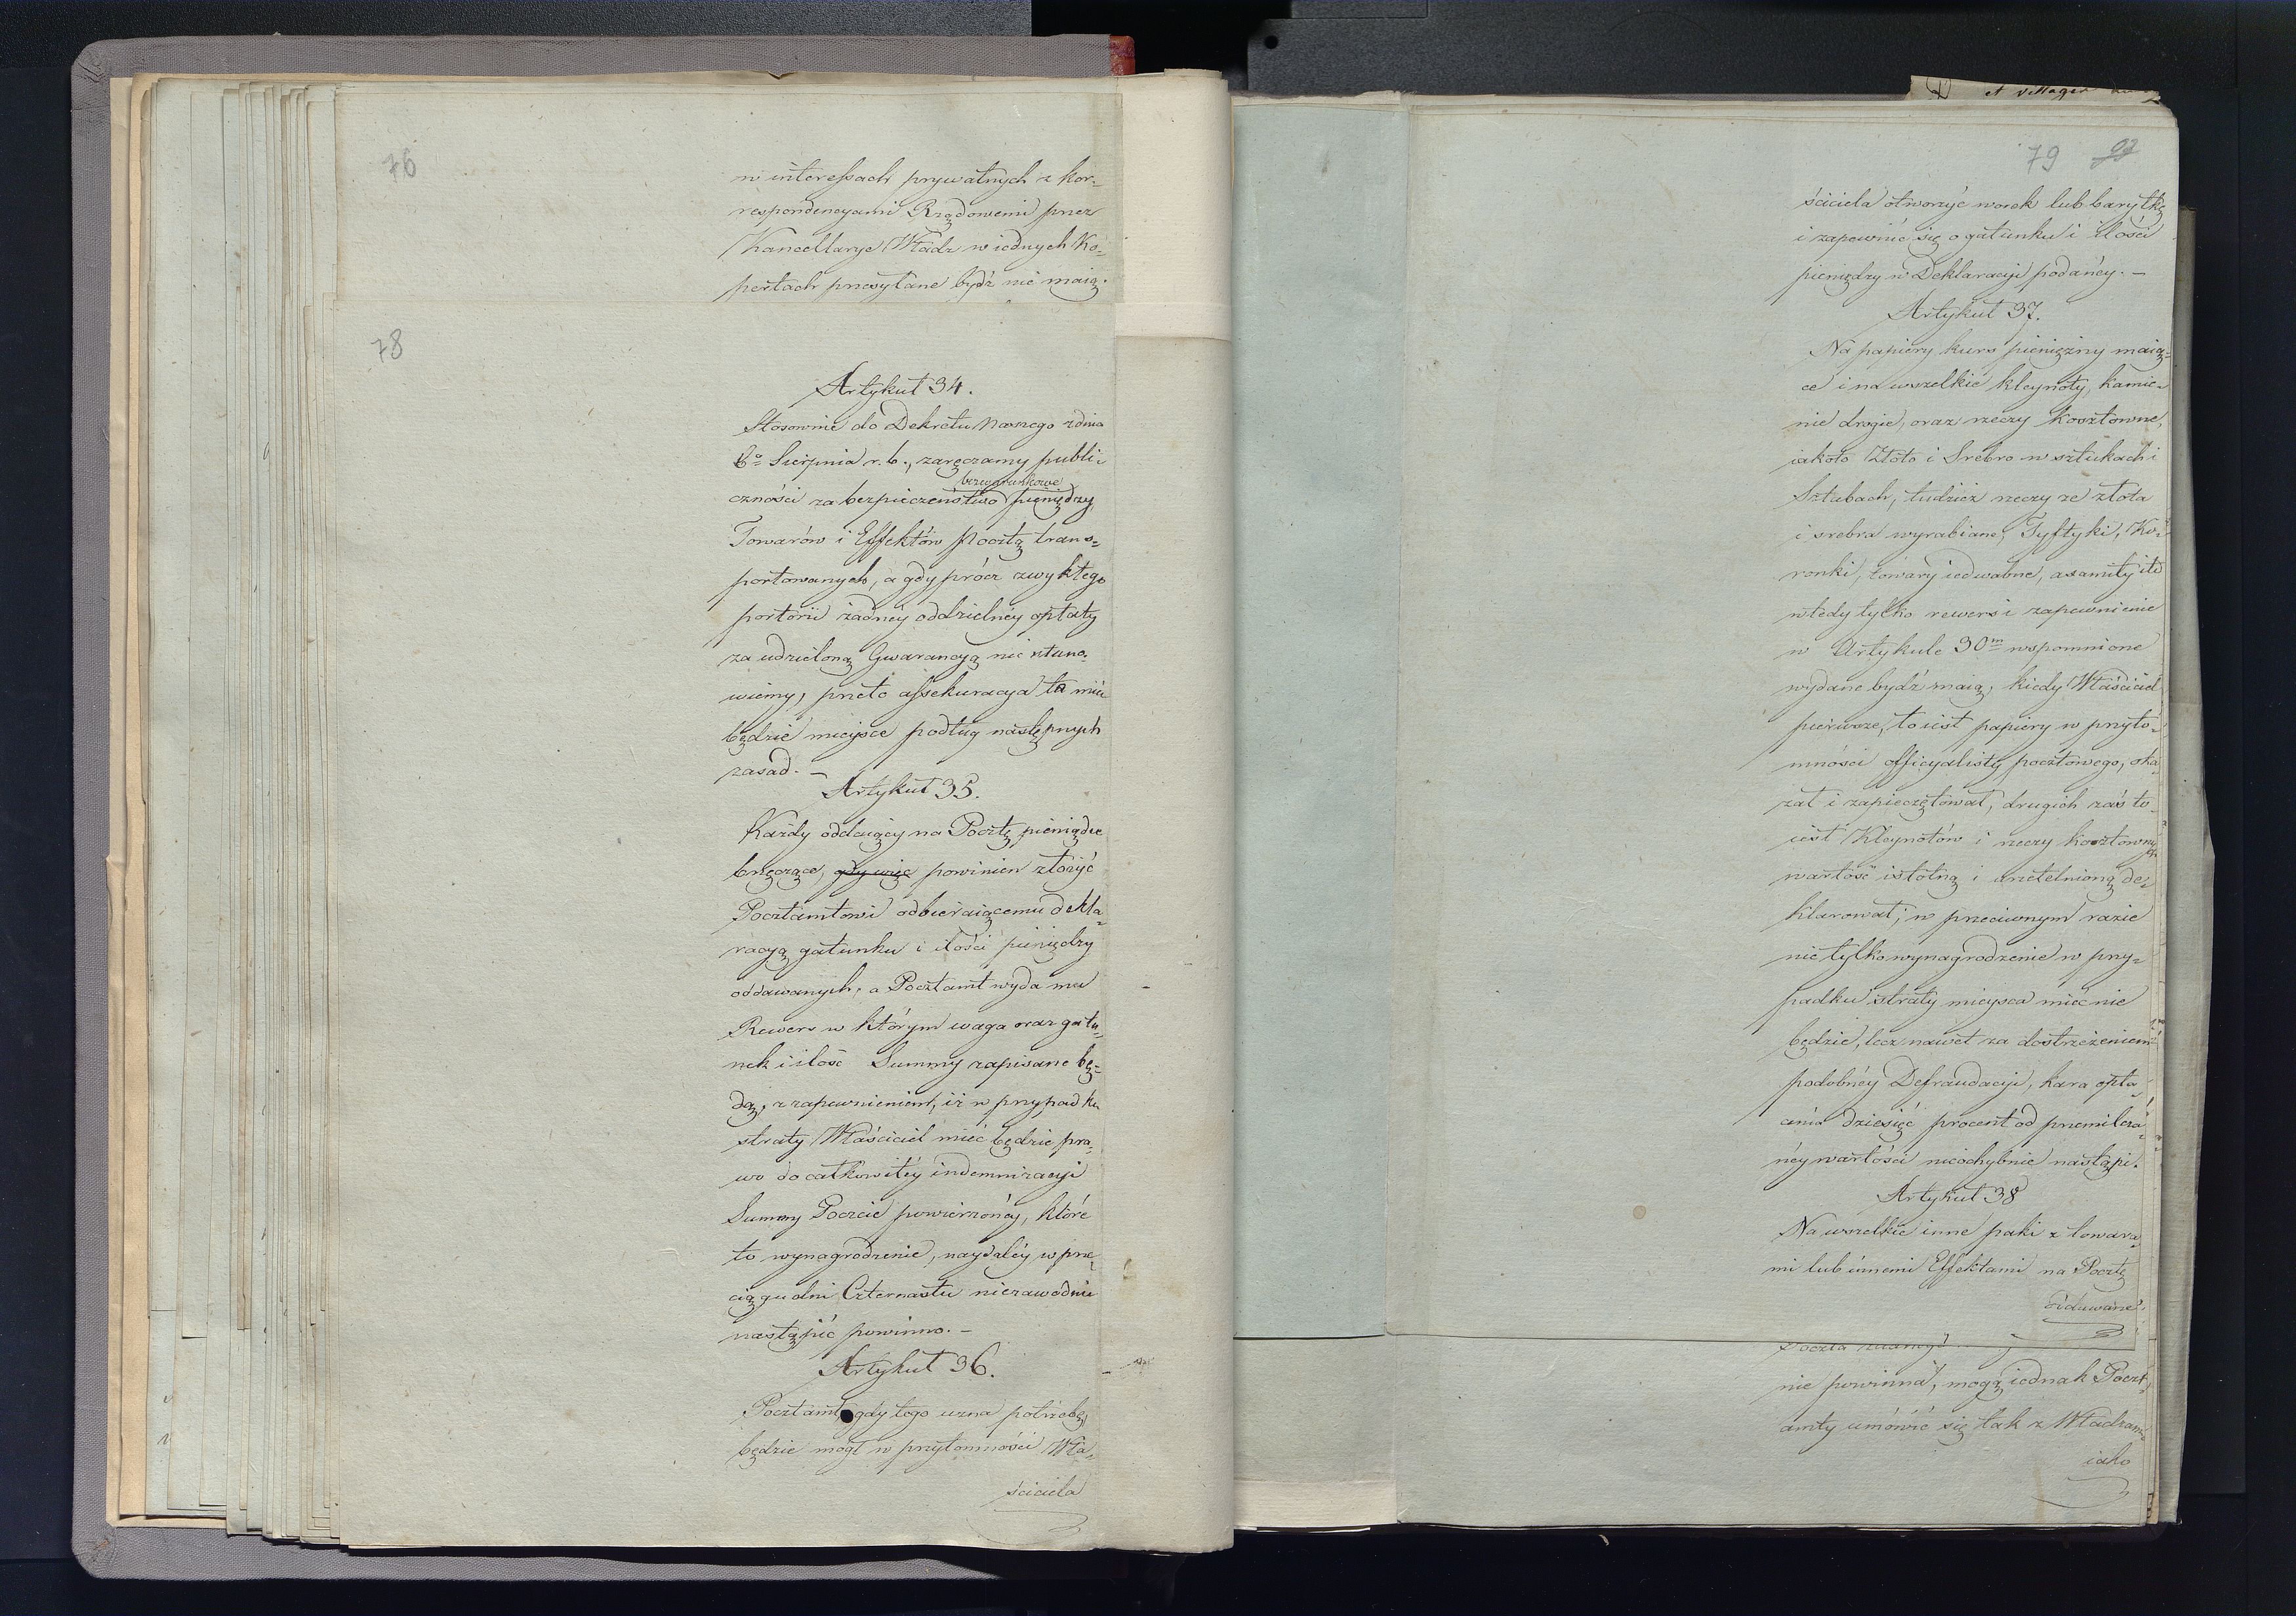 76
w interessach prywatnych z kor=
respondencyami Rządowemi przez
Kancellarye Władz w iednych Ko=
pertach przesyłane bydź nie maią.
78
Artykuł 34.
Stosownie do Dekretu Naszego z dnia
Sierpnia r. b., zaręczamy publi=
bezwarunkowe
czności za bezpieczeństwo pieniędzy,
Towarów i Effektów Pocztą trans=
portowanych, a gdy prócz zwykłego
portorii żadnéy oddzielnéy opłaty
za udzieloną Gwarancyą nie stano=
wiemy, przeto assekuracya ta mieć
będzie mieysce podług następnych
zasad. –
Artykuł 35.
Każdy oddaiący na Pocztę pieniądze
brzęczące, gdy więc powinien złożyć
Pocztamtowi odbieraiącemu dekla=
racyą gatunku i ilości pieniędzy
oddawanych, a Pocztamt wyda mu
Rewers w którym waga oraz gatu=
nek i ilość Summy zapisane bę=
dą, z zapewnieniem, iż w przypadku
straty Właściciel mieć będzie pra=
wo do całkowitéy indemnizacyi
Summy Poczcie powierzonéy, które
to wynagrodzenie, naydaléy w prze=
ciągu dni Czternastu niezawodnie
nastąpić powinno. –
Artykuł 36.
Pocztamt gdy tego uzna potrzebę,
będzie mógł w przytomności Wła=
ściciela
et villages
79 93
ściciela otworzyć worek lub baryłkę
i zapewnić się o gatunku i ilości
pieniędzy w Deklaracyi podanéy. –
Artykuł 37.
Na papiery kurs pieniężny maią=
ce i na wszelkie kleynoty, kamie=
nie drogie, oraz rzeczy kosztowne,
iakoto Złoto i Srebro w sztukach i
Sztabach, tudzież rzeczy ze złota
i srebra wyrabiane, Tyftyki, Ko=
ronki, towary iedwabne, axamity itd
wtedy tylko rewers i zapewnienie
w Artykule 30m wspomnione
wydane bydź maią, kiedy Właściciel
pierwsze, to iest papiery w przyto=
mności officyalisty pocztowego, oka=
zał i zapieczętował, drugich zaś to
iest Kleynotów i rzeczy kosztownych
wartość istotną i urzetelnioną de=
klarował; w przeciwnym razie
nie tylko wynagrodzenie w przy=
padku straty mieysca mieć nie
będzie, lecz nawet za dostrzeżeniem
podobnéy Defraudacyi, kara opła=
cenia dziesięć procent od przemilcza=
néy wartości nieochybnie nastąpi.
Artykuł 38
Na wszelkie inne paki z towara=
mi lub innemi Effektami na Pocztę
oddawane
nie powinna, mogą iednak Poczt=
amty umówić się tak z Władzami
iako